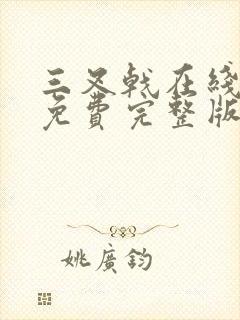 三叉戟在线
免費完整版
姚廣鈞